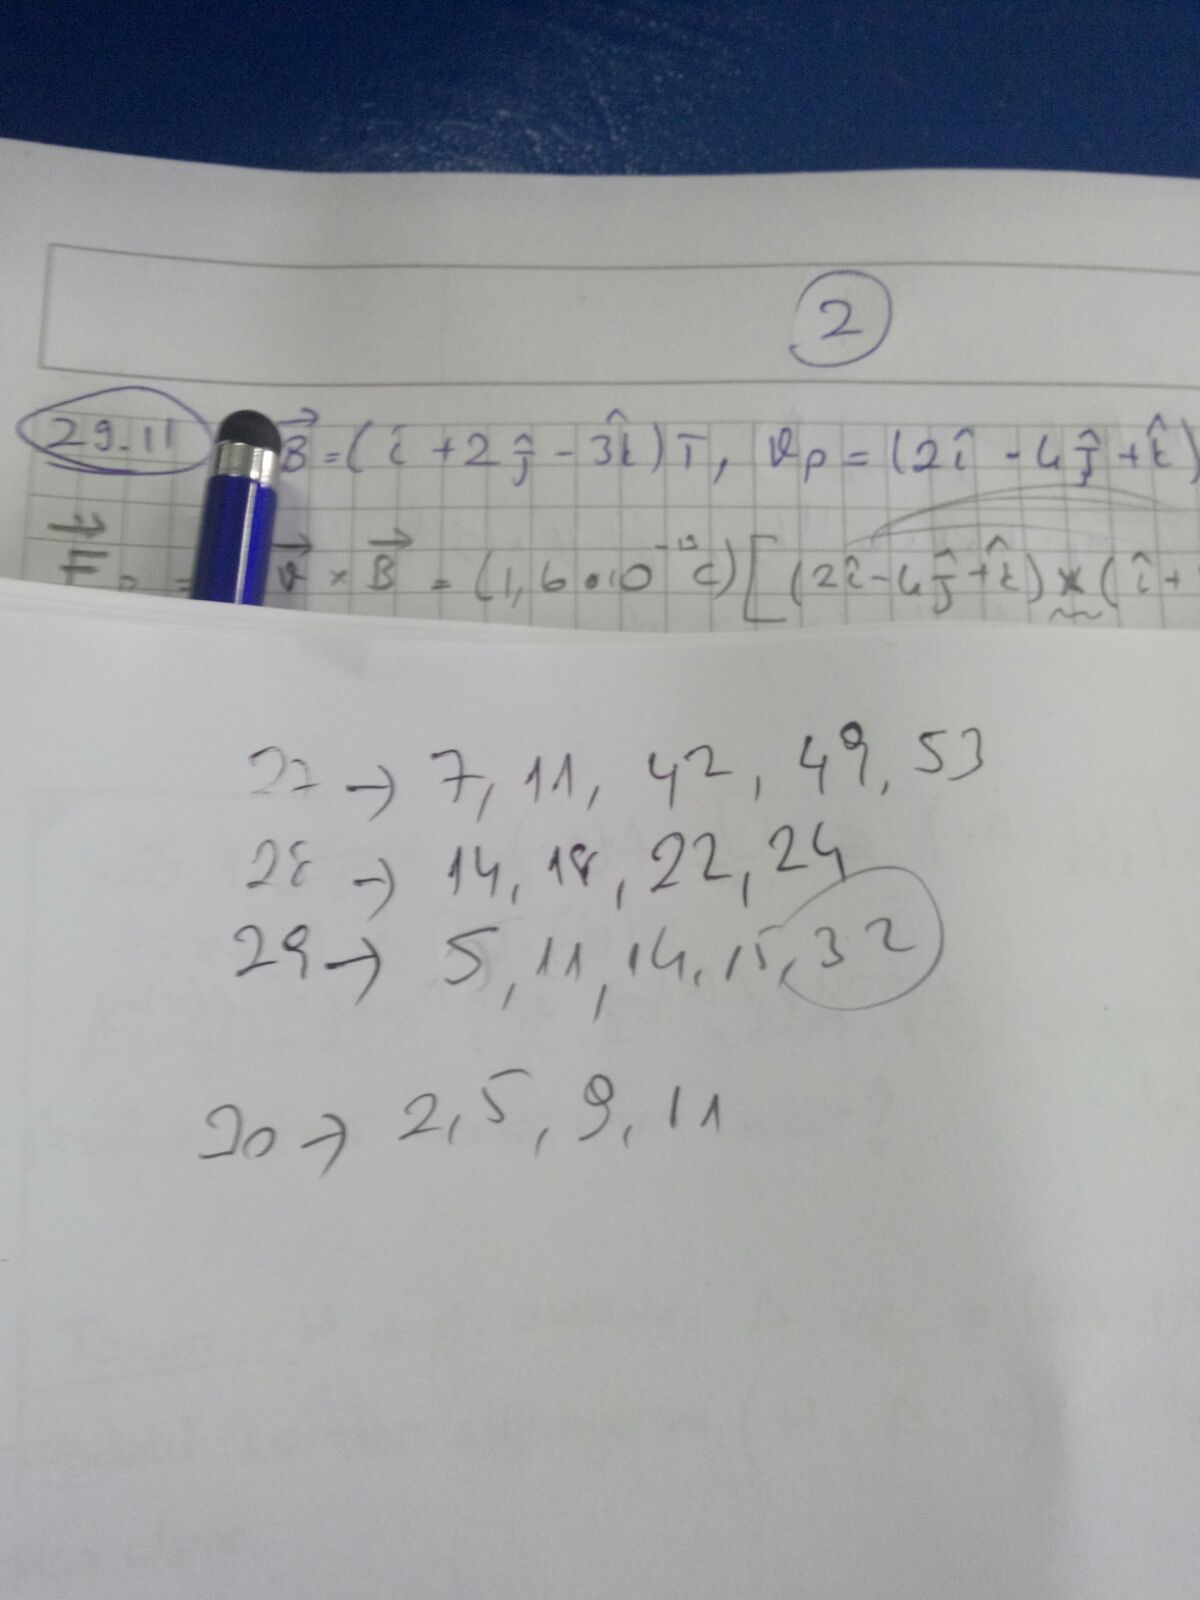 2
29.11 B = (î + 2ĵ - 3k̂) T, ϑp = (2î - 4ĵ + k̂)
F = ϑ × B = (1,6·10⁻¹⁹ C) [(2î - 4ĵ + k̂) × (î +
27 → 7, 11, 42, 49, 53
28 → 14, 18, 22, 24
29 → 5, 11, 14, 15, 32
30 → 2, 5, 9, 11